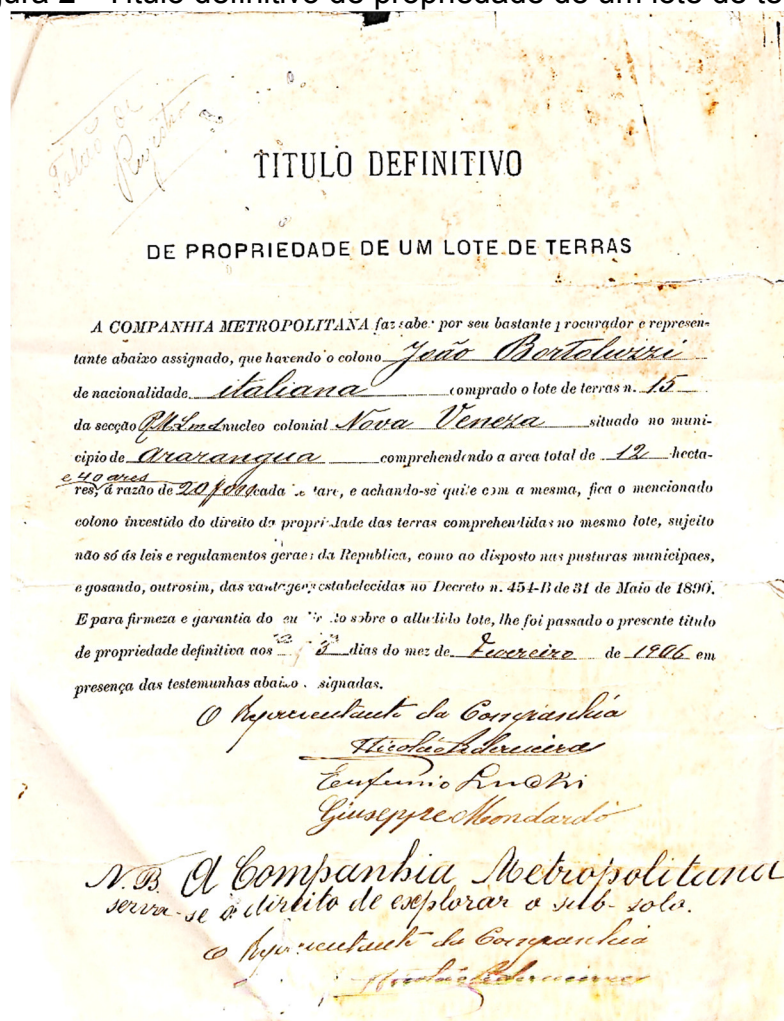 Titulo definitivo de propriedade de um lote de
TITULO DEFINITIVO
DE PROPRIEDADE DE UM LOTE DE TERRAS
A COMPANHIA METROPOLITANA faz saber por seu bastante procurador e represen-
tante abaixo assignado, que havendo o colono João Bortoluzzi
de nacionalidade italiana comprado o lote de terras n. 15
da secção nucleo colonial Nova Veneza situado no muni-
cipio de Araranguá comprehendendo a area total de 12 hecta-
e 40 ares
res, á razão de cada, e achando-se quite com a mesma, fica o mencionado
colono investido do direito de propriedade das terras comprehendidas no mesmo lote, sujeito
não só ás leis e regulamentos geraes da Republica, como ao disposto nas posturas municipaes,
e gosando, outrosim, das vantagens estabelecidas no Decreto n. 451-B de 31 de Maio de 1890.
E para firmeza e garantia do sobre o alludido lote, lhe foi passado o presente titulo
de propriedade definitiva aos 3 dias do mez de Fevereiro de 1906 em
presença das testemunhas abaixo signadas.
O Representante da Companhia
Giuseppe Mondardó
N.B. A Companhia Metropolitana
serva-se o direito de explorar o sub-solo.
O Representante da Companhia